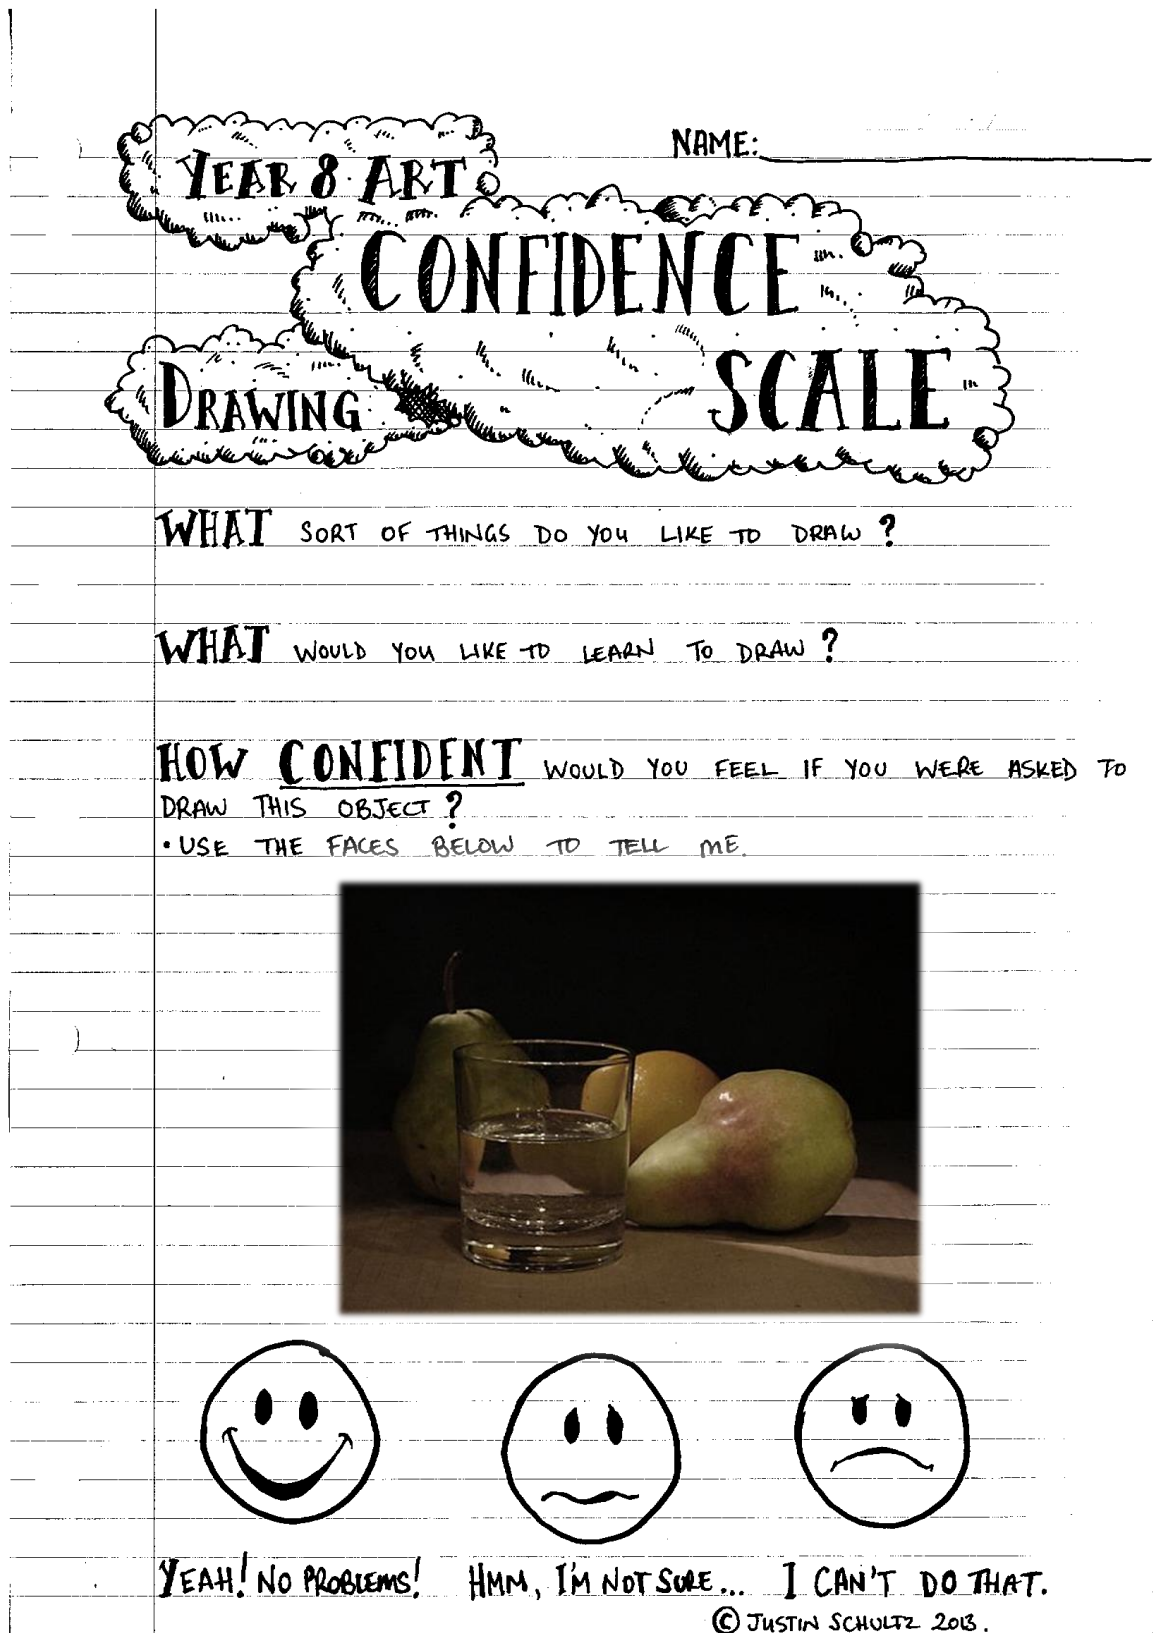 YEAR 8 ART
NAME:
CONFIDENCE
SCALE
DRAWING
WHAT SORT OF THINGS DO YOU LIKE TO DRAW?
WHAT WOULD YOU LIKE TO LEARN TO DRAW?
HOW CONFIDENT WOULD YOU FEEL IF YOU WERE ASKED TO
DRAW THIS OBJECT?
• USE THE FACES BELOW TO TELL ME.
YEAH! NO PROBLEMS!
HMM, I'M NOT SURE...
I CAN'T DO THAT.
© JUSTIN SCHULTZ 2013.